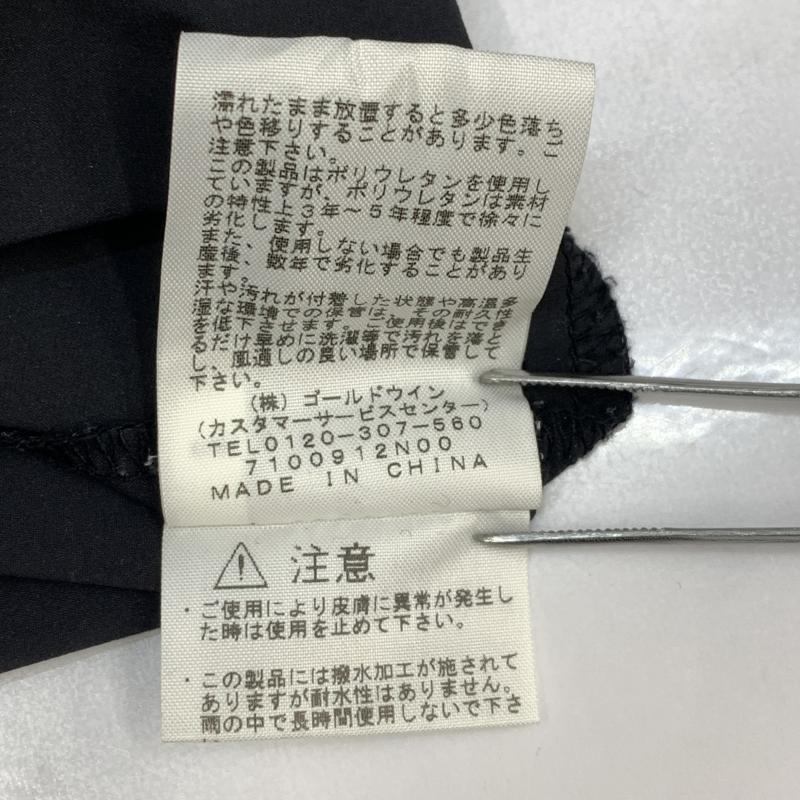 濡れたまま放置すると多少色落ち
や色移りすることがあります。ご
注意下さい。
この製品はポリウレタンを使用し
ていますが、ポリウレタンは素材
の特性上3年～5年程度で徐々に
劣化します。
また、使用しない場合でも製品生
産後、数年で劣化することがあり
ます。
汗や汚れが付着した状態や高温多
湿な環境での保管は、その耐久性
を低下させます。ご使用後はでき
るだけ早めに洗濯等で汚れを落と
し、風通しの良い場所で保管して
下さい。
(株)ゴールドウイン
(カスタマーサービスセンター)
TEL0120-307-560
7100912N00
MADE IN CHINA
注意
・ご使用により皮膚に異常が発生し
た時は使用を止めて下さい。
・この製品には撥水加工が施されて
ありますが耐水性はありません。
雨の中で長時間使用しないで下さ